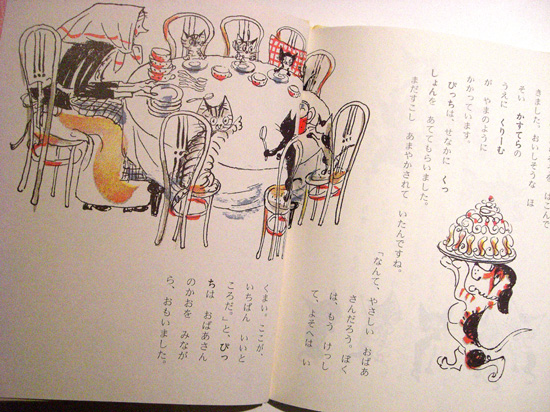 を はこんで
きました。おいしそうな ほ
そい かすてらの
うえに くりーむ
が やまのように
かかっています。
ぴっちは、せなかに くっ
しょんを あててもらいました。
まだすこし あまやかされて いたんですね。
「なんて、やさしい おばあ
さんだろう。ぼく
は、もう けっし
て、よそへは い
くまい。ここが、
いちばん いいと
ころだ。」と、ぴっ
ちは おばあさん
のかおを みなが
ら、おもいました。